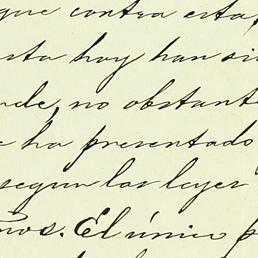 que contra esta
sta hoy han si
nde, no obstant
ha presentado
segun las leyes
mos. El único p